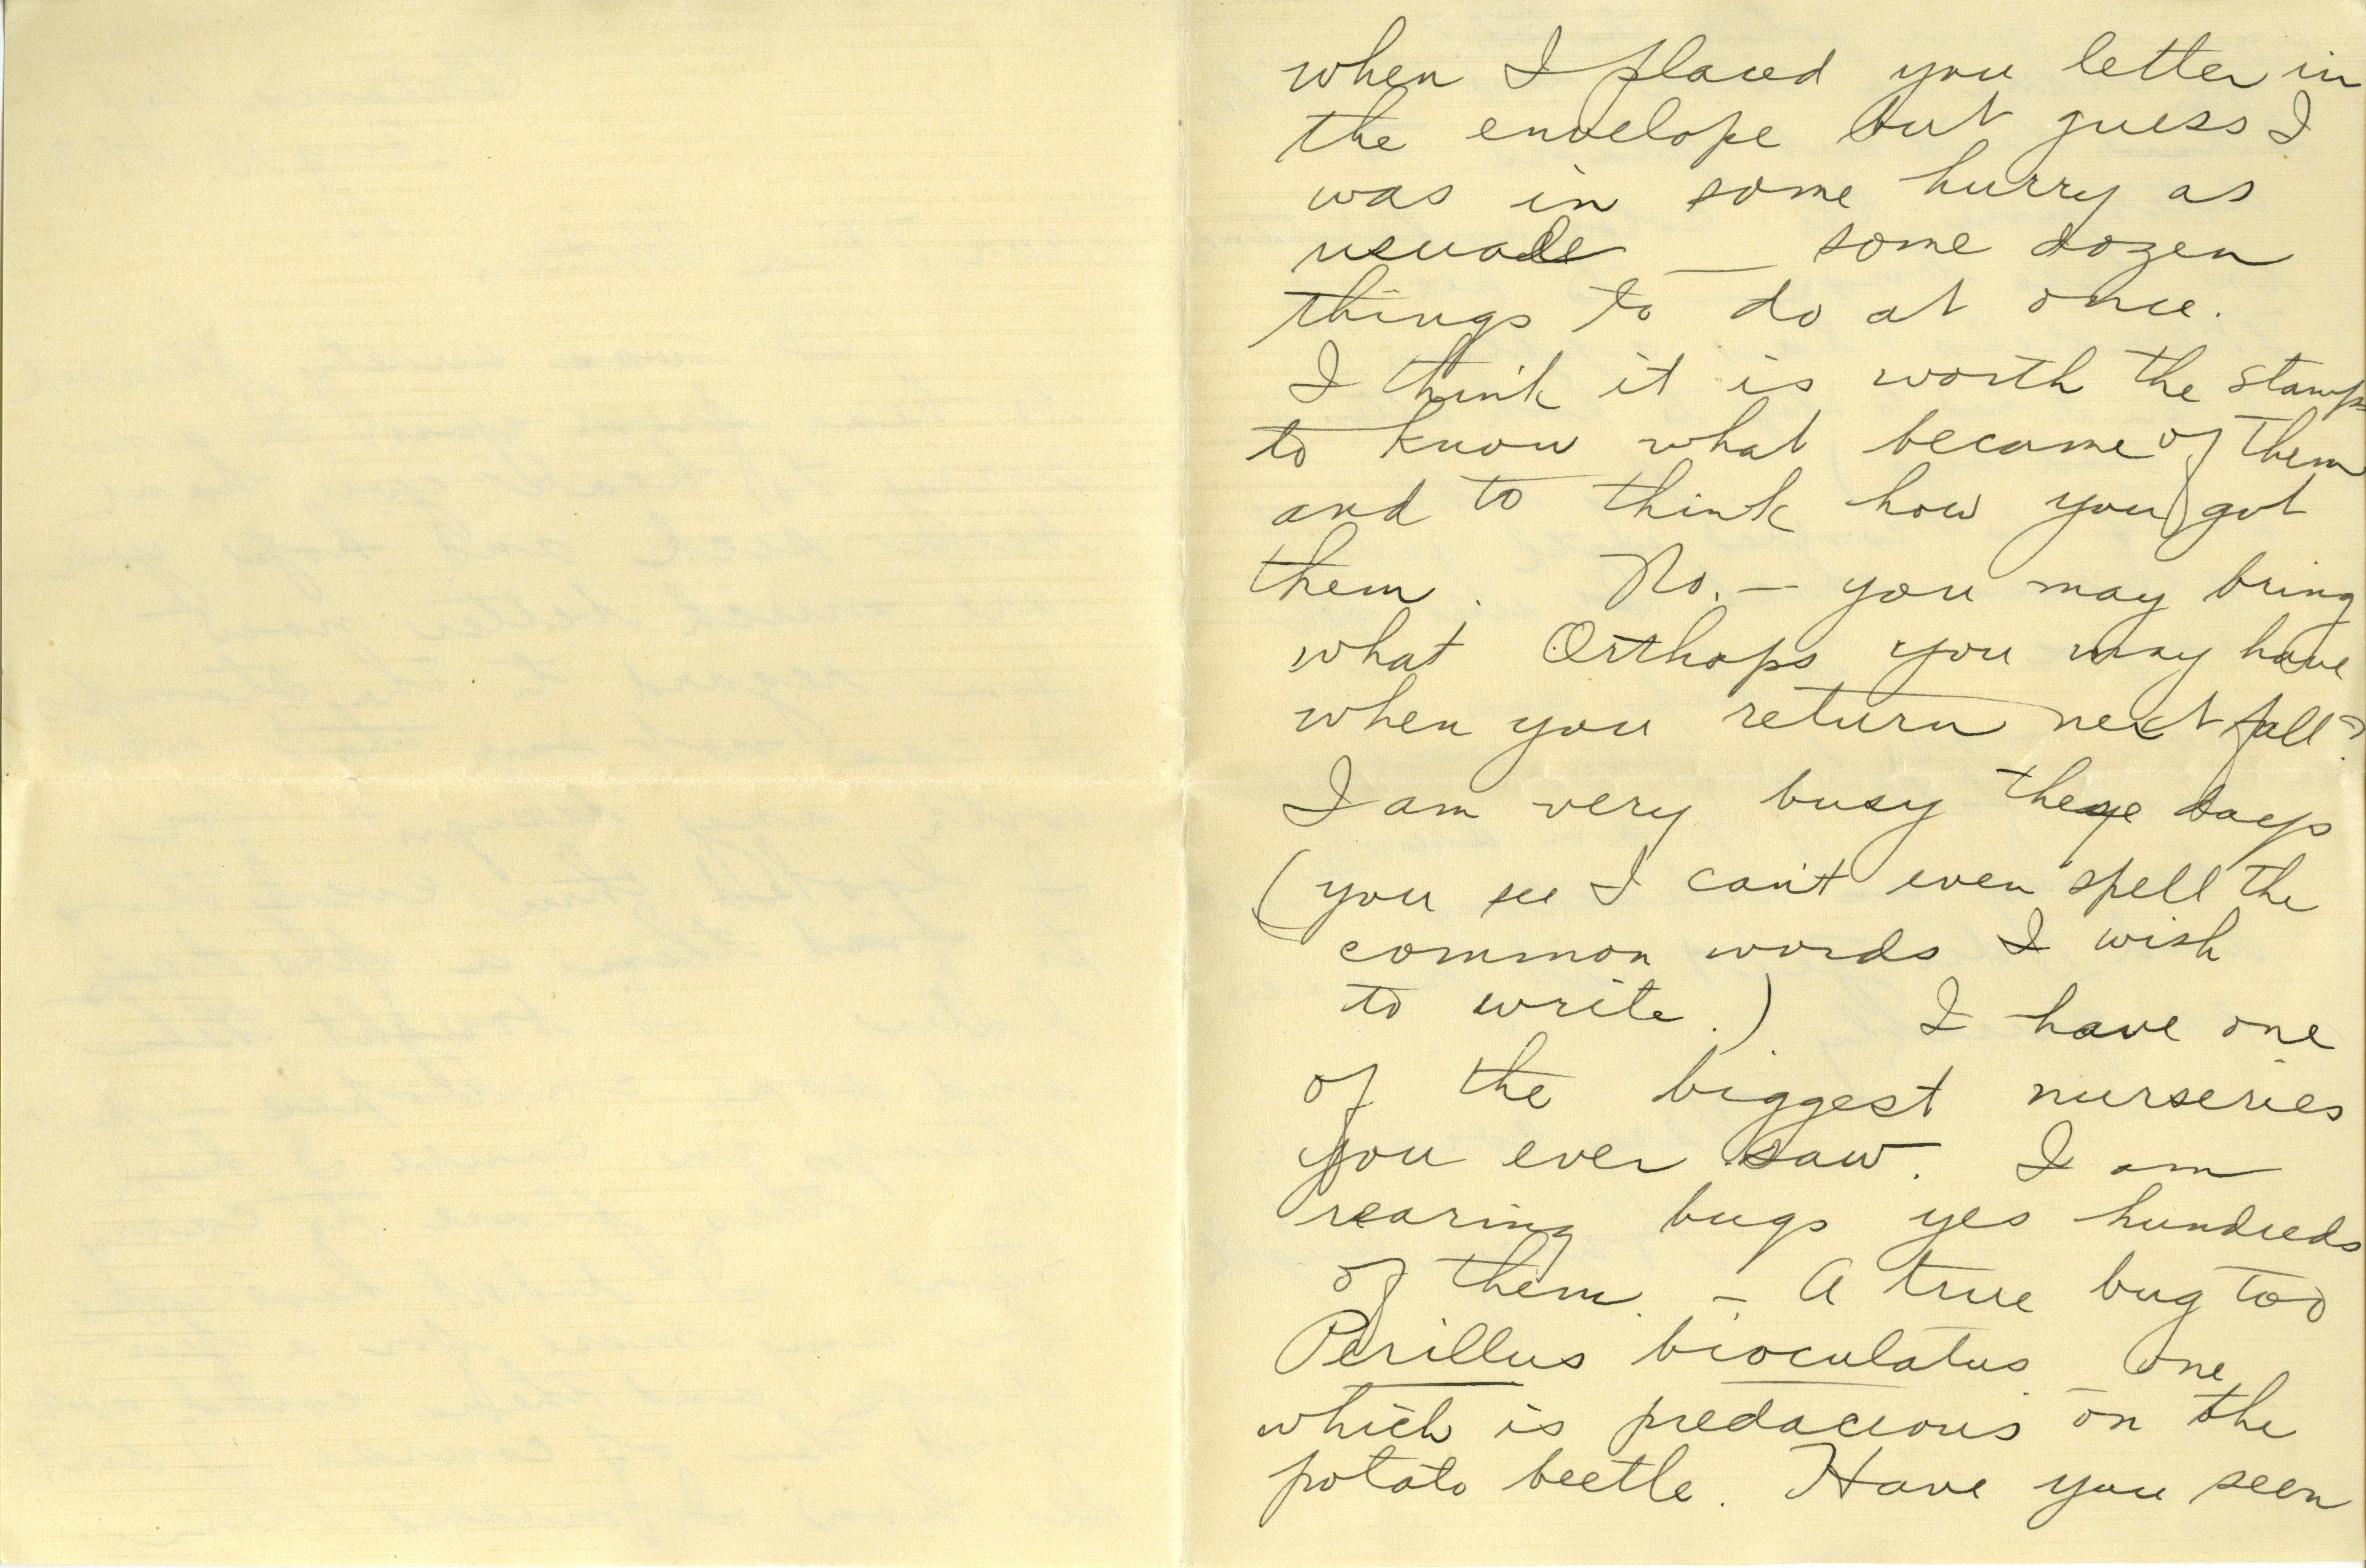 when I placed you letter in
the envelope but guess I
was in some hurry as
usuale — some dozen
things to do at once.
I think it is worth the stamps
to know what became of them
and to think how you got
them. No. — you may bring
what Orthops you may have
when you return next fall?
I am very busy these days
(you see I can't even spell the
common words I wish
to write.) I have one
of the biggest nurseries
you ever saw. I am
rearing bugs yes hundreds
of them. — A true bug too
Perillus bioculatus one
which is predacious on the
potato beetle. Have you seen